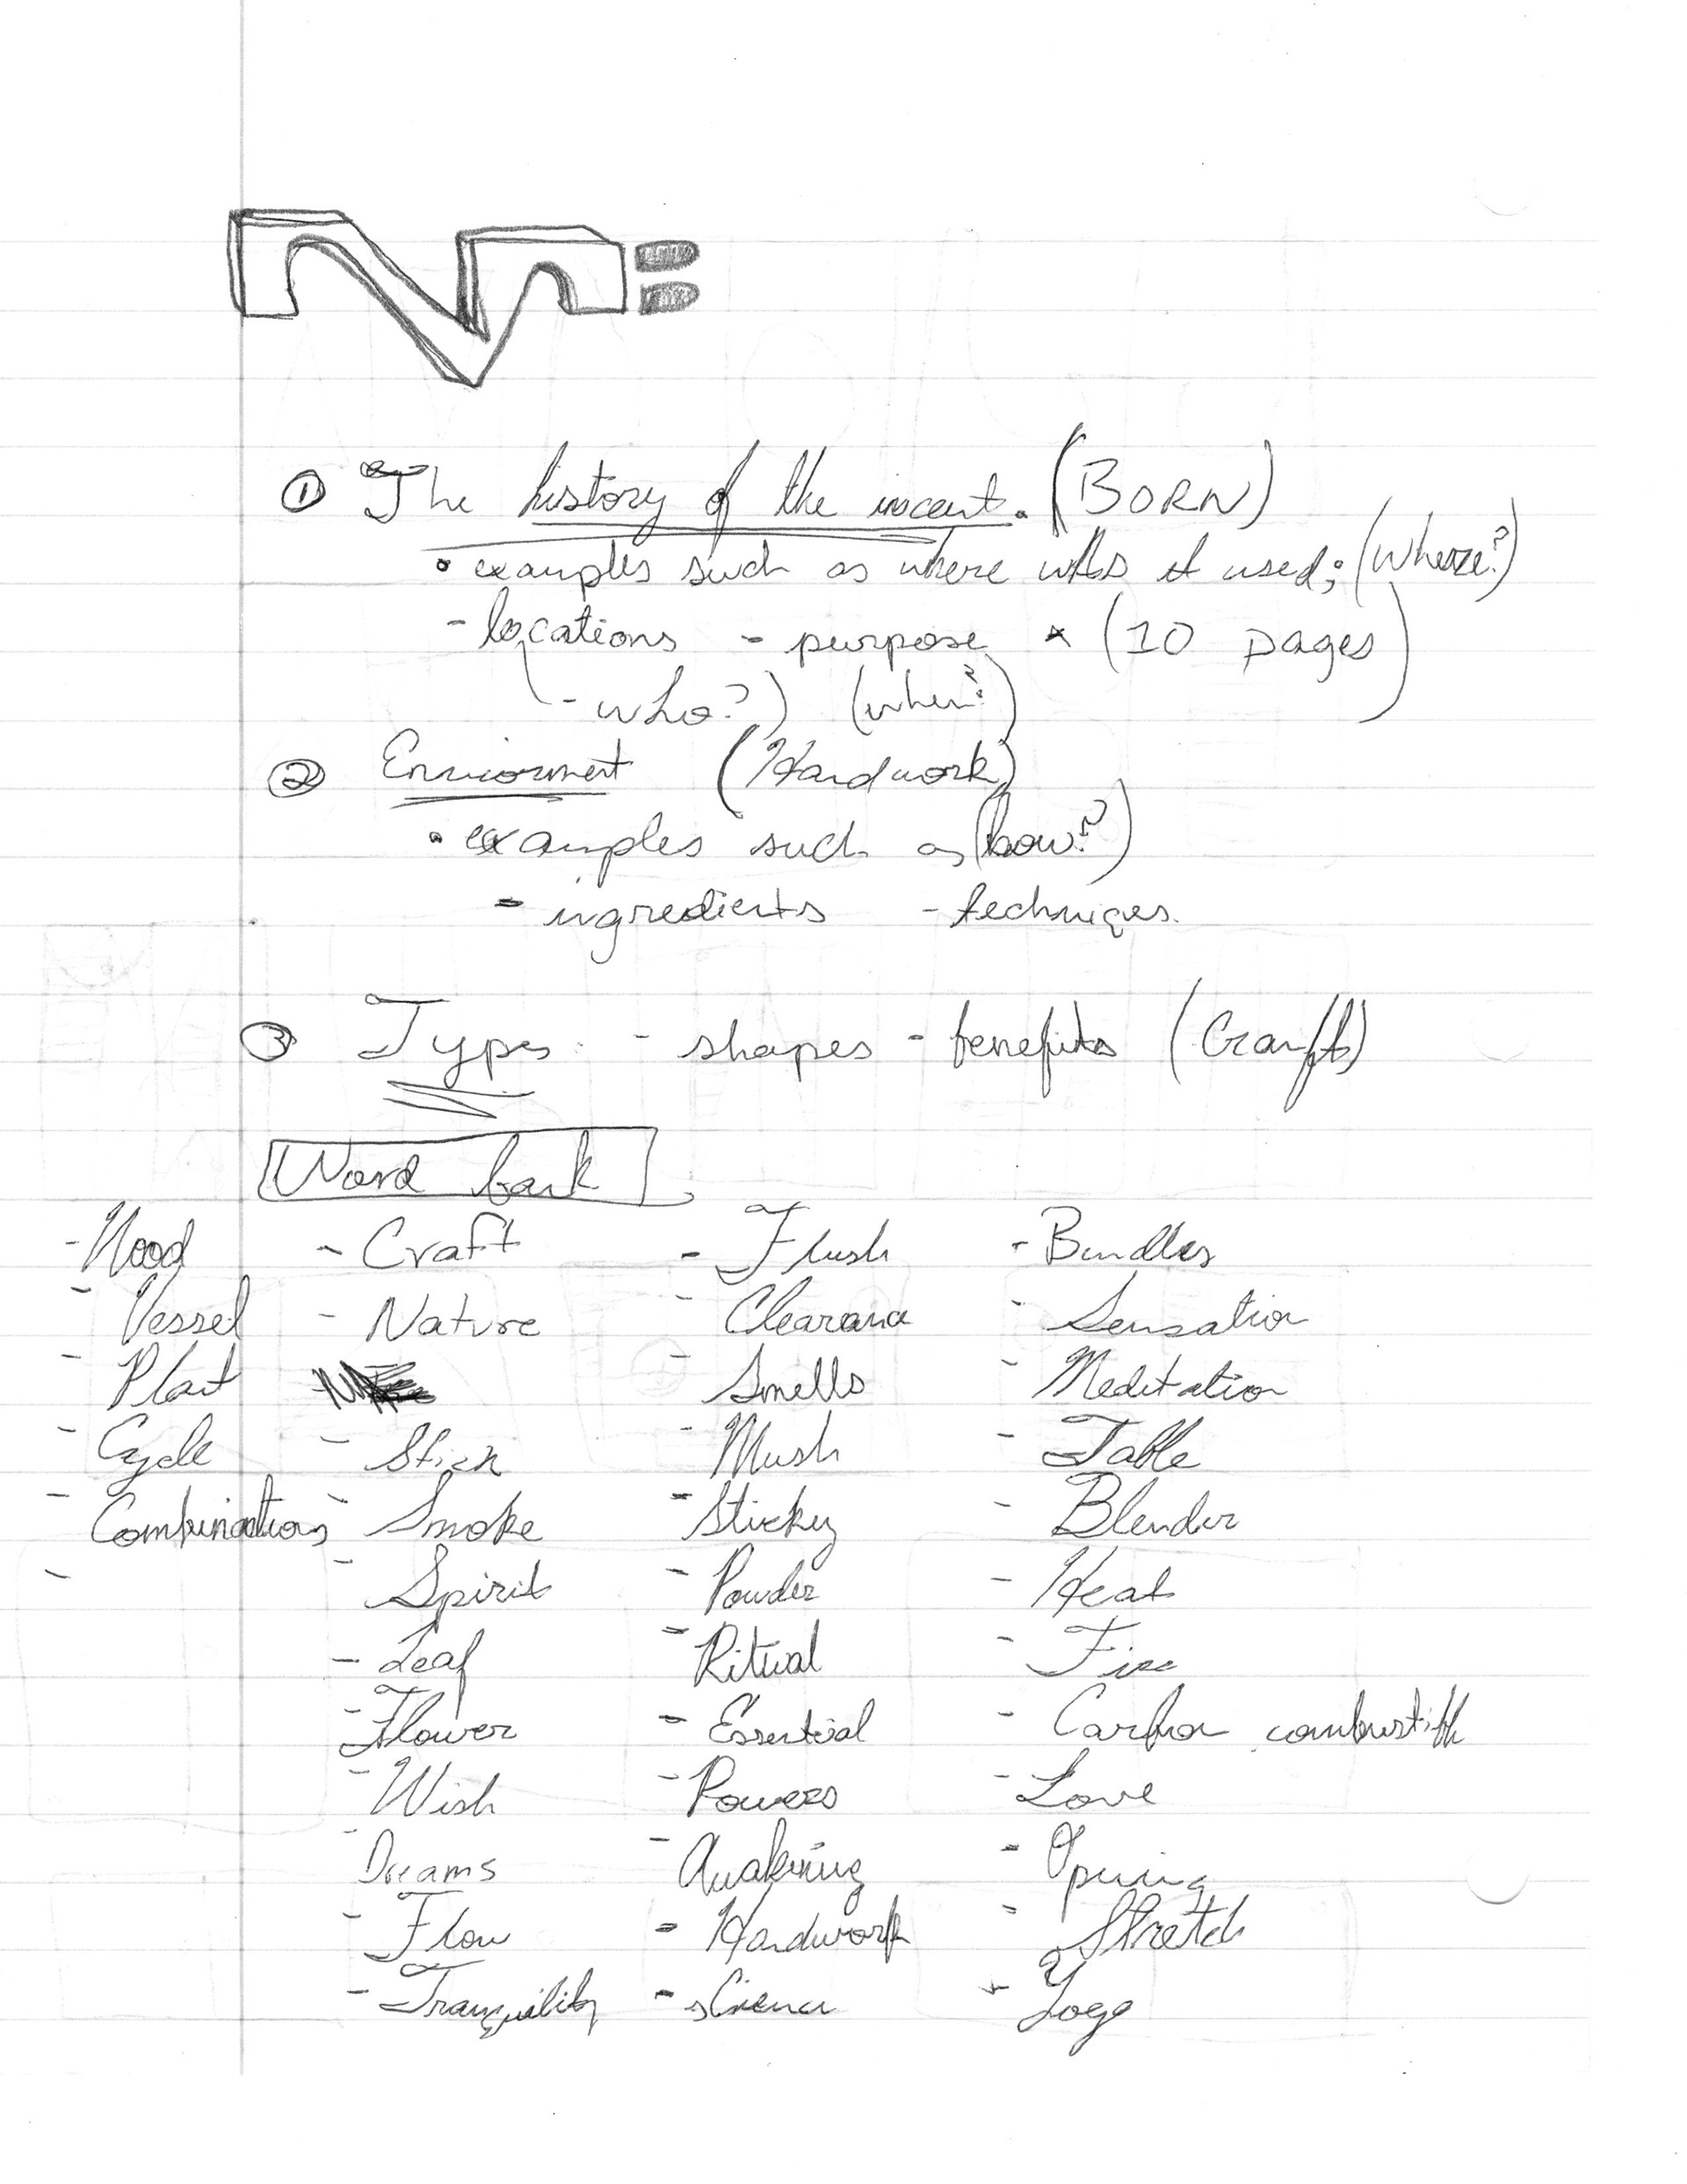 ① The history of the incent. (BORN)
• examples such as where was it used; (where?)
- locations - purpose * (10 pages)
(- who?) (when?)
② Enviorment (Hardwork)
• examples such as (how?)
- ingredients - techniqes.
③ Types: - shapes - benefits (Craft)
Word bank
- Wood - Craft - Flush - Bundles
- Vessel - Nature - Clearance - Sensation
- Plant - Smells - Meditation
- Cycle - Stick - Mush - Table
- Combinations - Smoke - Sticky - Blender
- - Spirit - Powder - Heat
- Leaf - Ritual - Fire
- Flower - Essential - Carbon combustible
- Wish - Powers - Love
- Dreams - Awakining - Opening
- Flow - Hardwork - Stretch
- Tranquility - science - Yoga